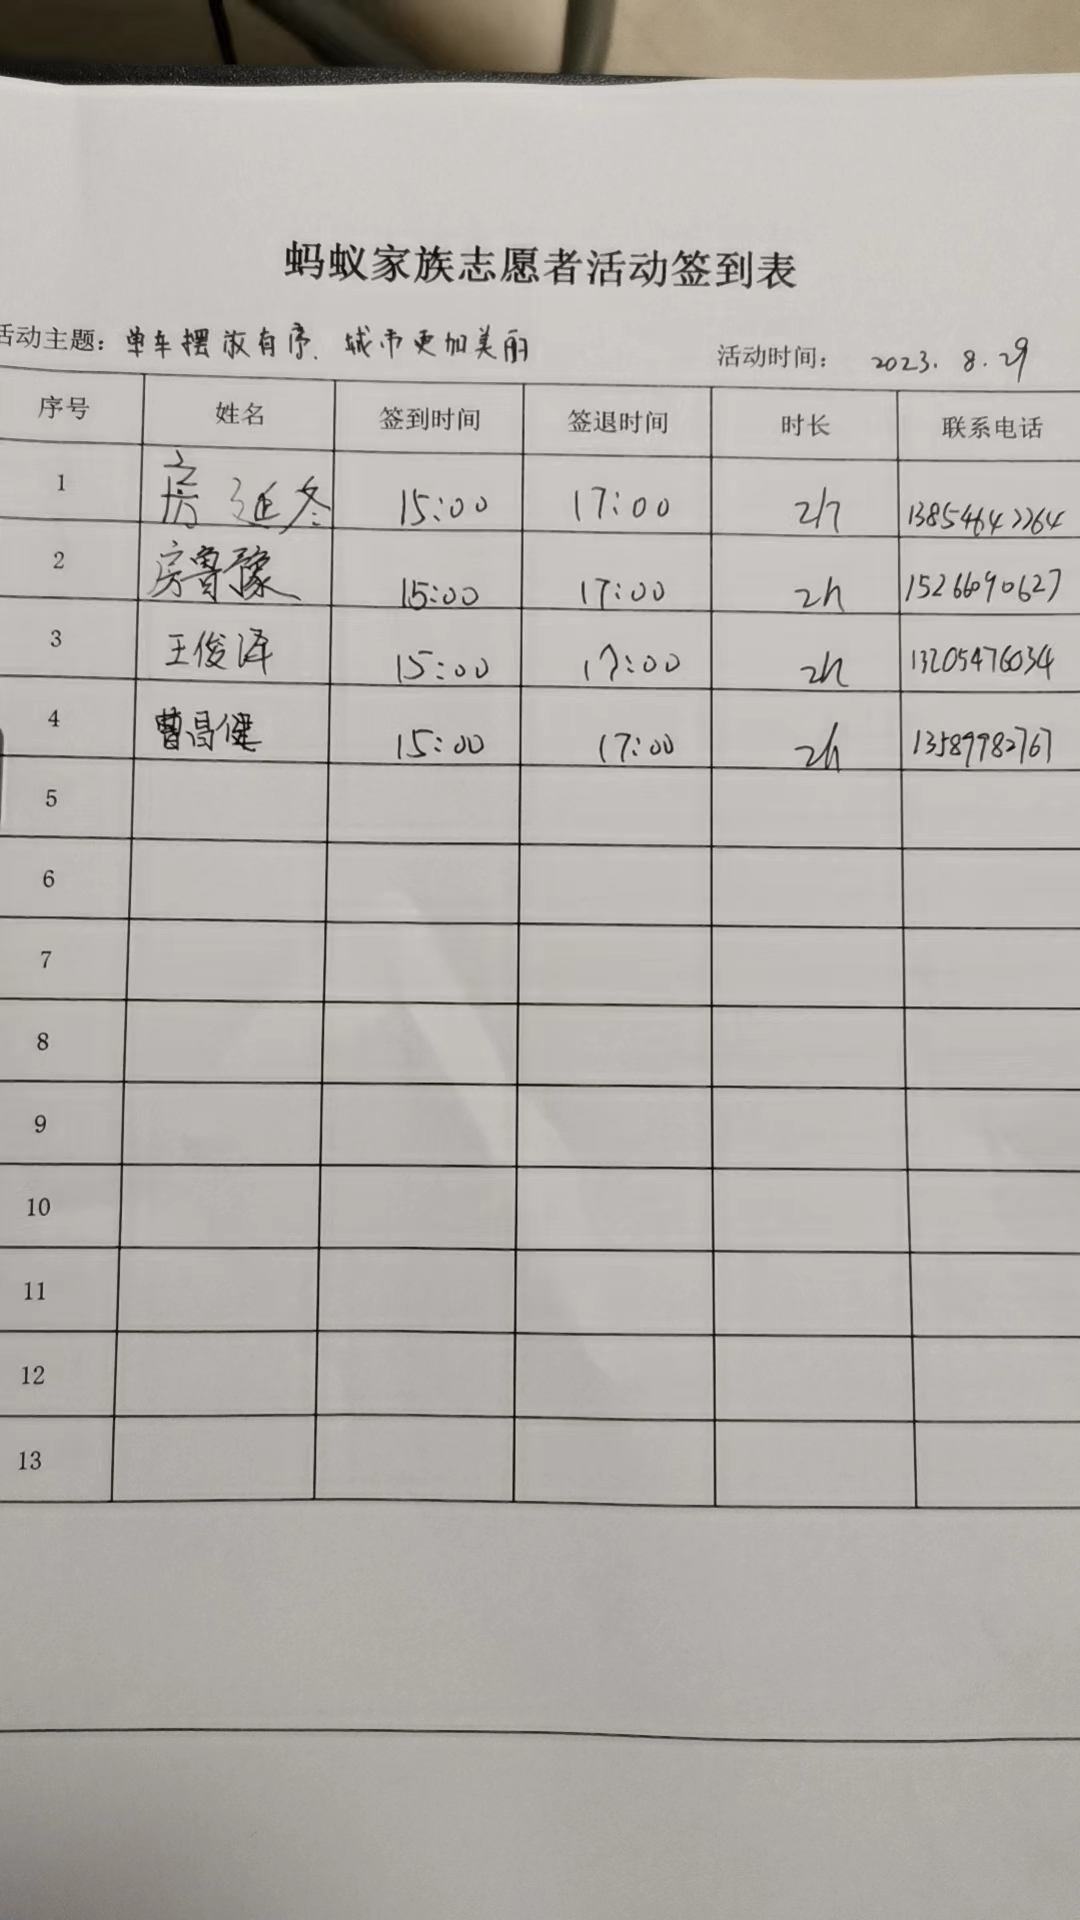 蚂蚁家族志愿者活动签到表
活动主题：单车摆放有序、城市更加美丽 活动时间： 2023.8.29
序号 姓名 签到时间 签退时间 时长 联系电话
1 房延冬 15:00 17:00 2h 13854642264
2 房鲁豫 15:00 17:00 2h 15266090627
3 王俊泽 15:00 17:00 2h 13205476034
4 曹昌健 15:00 17:00 2h 13589982767
5
6
7
8
9
10
11
12
13